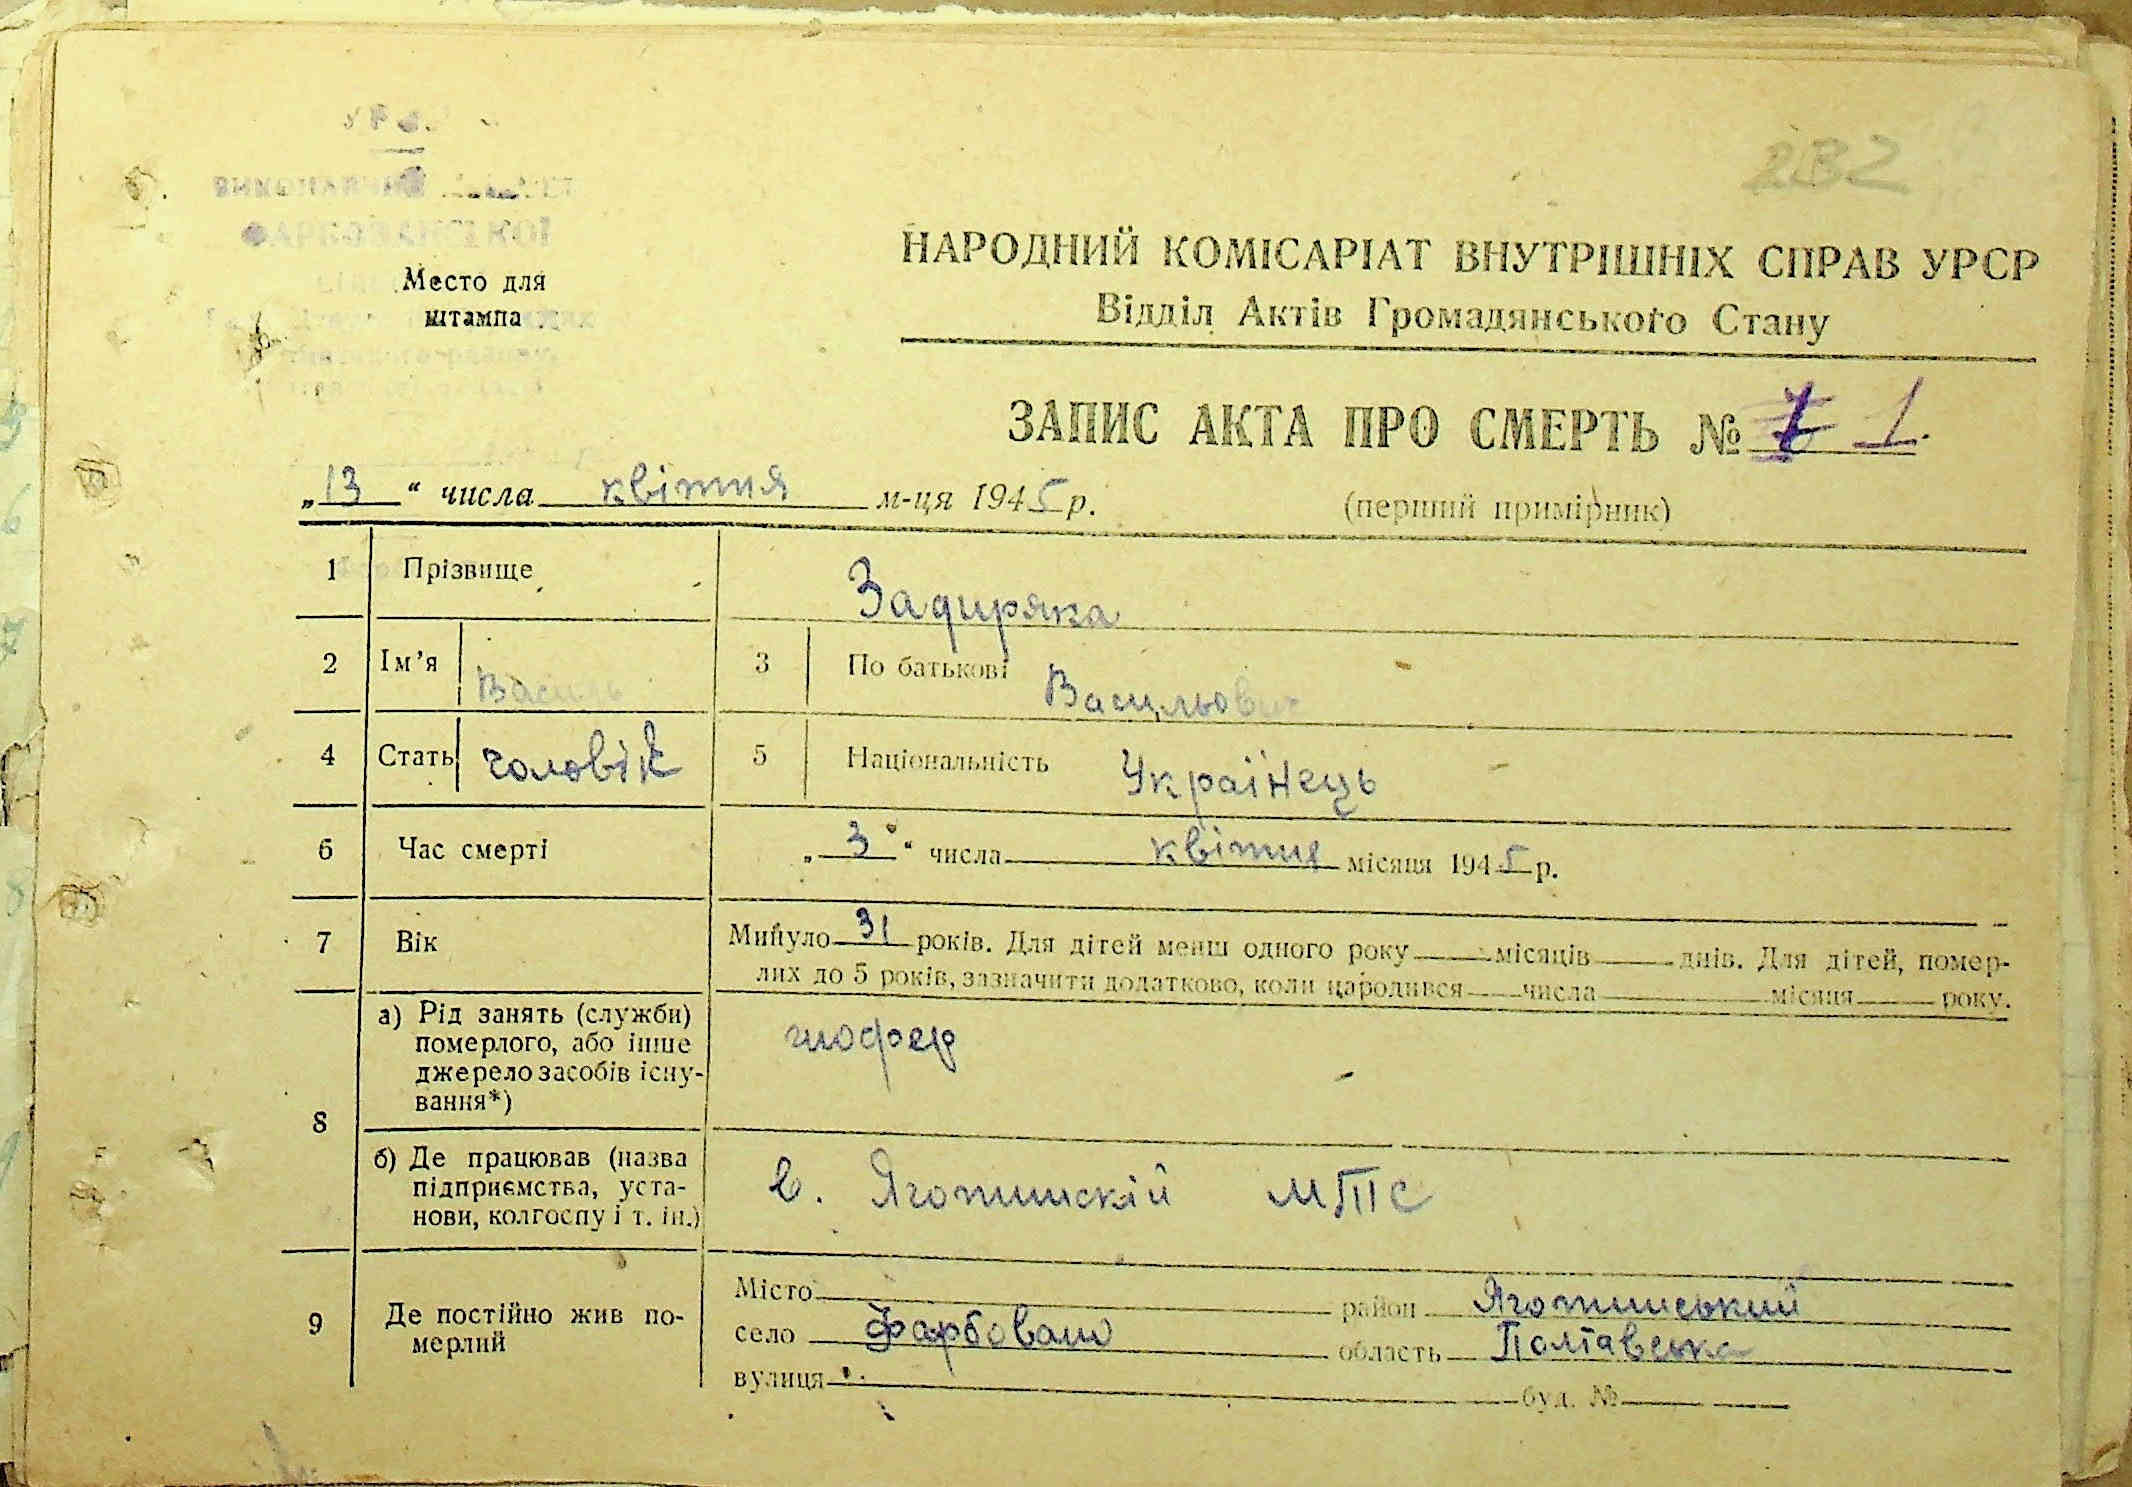 232
ВИКОНАВЧИЙ
ФАРБОВАНСЬКОЇ
Место для
штампа
НАРОДНИЙ КОМІСАРІАТ ВНУТРІШНІХ СПРАВ УРСР
Відділ Актів Громадянського Стану
ЗАПИС АКТА ПРО СМЕРТЬ № 1.
„13“ числа квітня м-ця 1945 р.
(перший примірник)
1 Прізвище Задиряка
2 Ім’я Василь 3 По батькові Васильович
4 Стать чоловік 5 Національність Українець
6 Час смерті „3“ числа квітня місяця 1945 р.
7 Вік Минуло 31 років. Для дітей менш одного року місяців днів. Для дітей, помер-
лих до 5 років, зазначити додатково, коли народився числа місяця року.
8 а) Рід занять (служби)
померлого, або інше
джерело засобів існу-
вання*)
шофер
б) Де працював (назва
підприємства, уста-
нови, колгоспу і т. ін.)
в. Яготинскій МТС
9 Де постійно жив по-
мерлий
Місто район Яготинський
село Фарбовано область Полтавська
вулиця буд. №